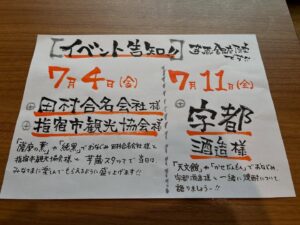 【イベント告知!!】
7月4日(金)
田村合名会社様
指宿市観光協会様
「薩摩の薫」や「純黒」でおなじみ 田村合名会社様と
指宿市観光協会様と
スタッフで当日は
みなさまに楽しんでもらえるように盛り上げます!!
7月11日(金)
宇都
酒造様
「天文館」や「かせだもん」でおなじみ
宇都酒造様と一緒に焼酎について
語りましょう〜!!